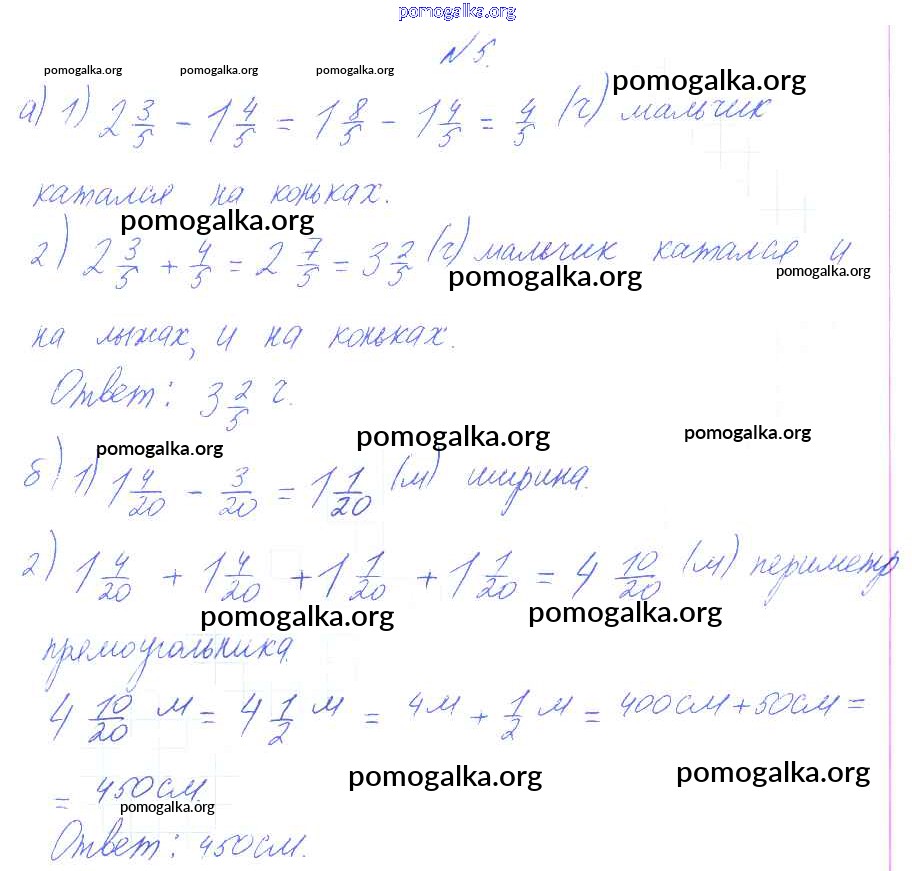 pomogalka.org
№5.
pomogalka.org pomogalka.org pomogalka.org pomogalka.org
а) 1) 2 3/5 - 1 4/5 = 1 8/5 - 1 4/5 = 4/5 (ч) мальчик
катался на коньках.
pomogalka.org
2) 2 3/5 + 4/5 = 2 7/5 = 3 2/5 (ч) мальчик катался и
pomogalka.org pomogalka.org
на лыжах, и на коньках.
Ответ: 3 2/5 ч.
pomogalka.org pomogalka.org pomogalka.org
б) 1) 1 4/20 - 3/20 = 1 1/20 (м) ширина.
2) 1 4/20 + 1 4/20 + 1 1/20 + 1 1/20 = 4 10/20 (м) периметр
pomogalka.org pomogalka.org
прямоугольника.
4 10/20 м = 4 1/2 м = 4м + 1/2 м = 400см + 50см =
pomogalka.org pomogalka.org
= 450см.
pomogalka.org
Ответ: 450см.